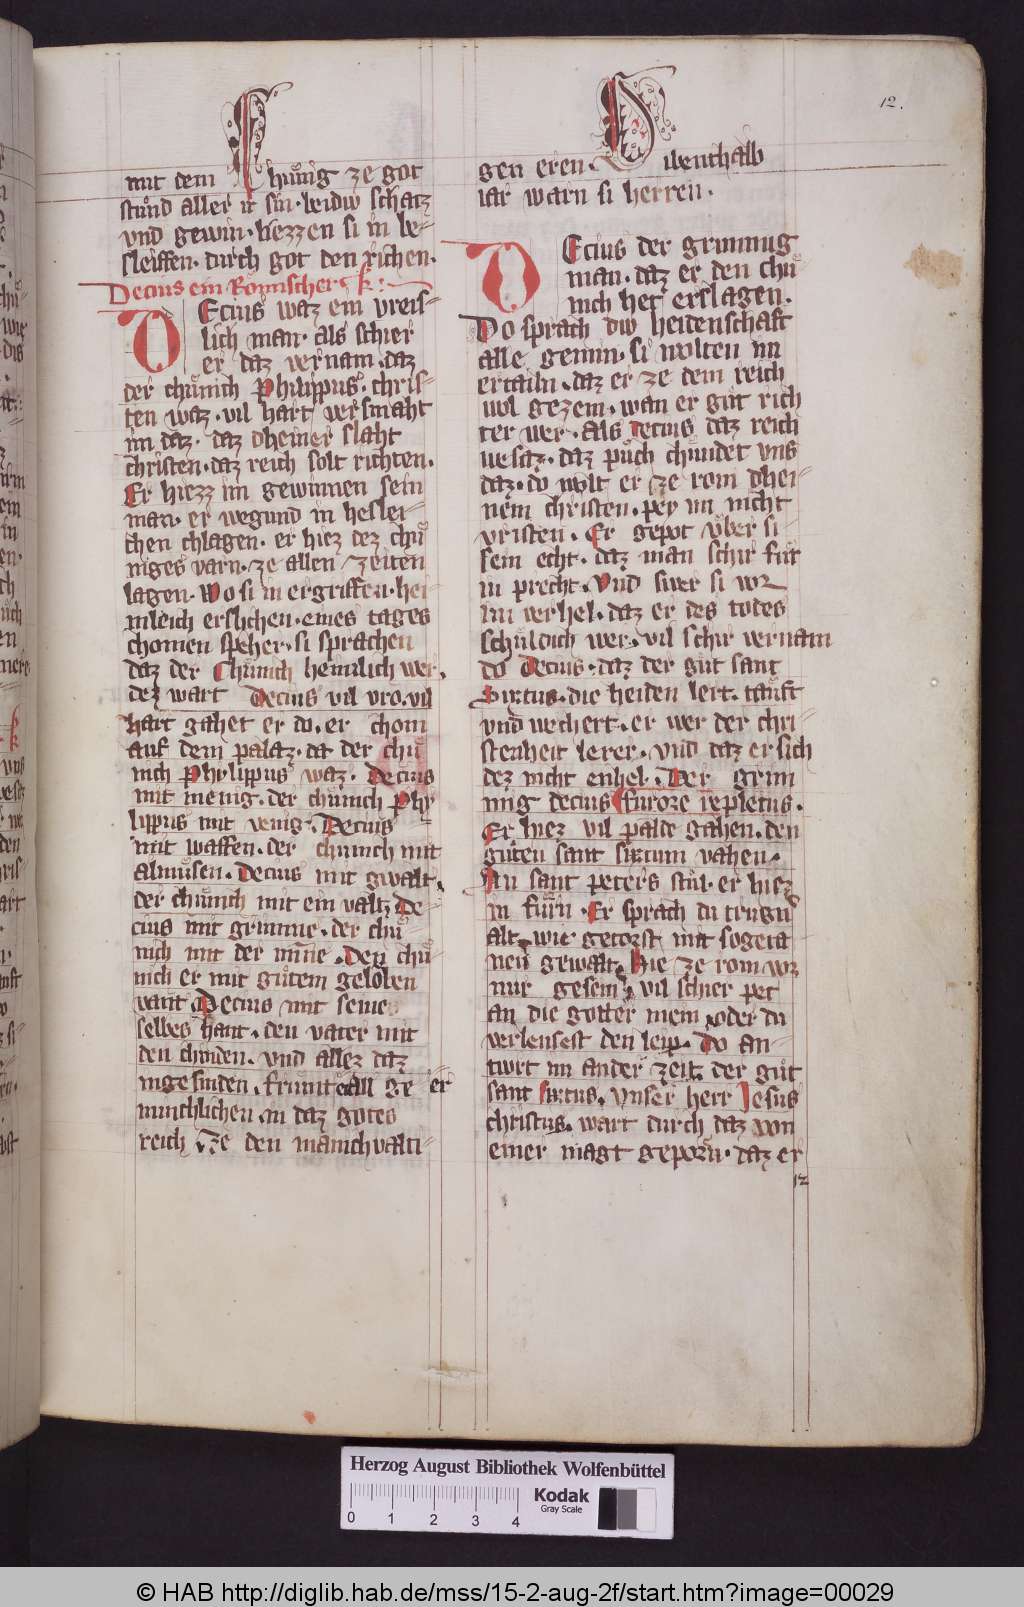 12.
mit dem Chuͤnig ze got
stuͦnd aller ir sin · beidiw schatz
vnd gewin · liezzen si in be⸗
sleiffen · durch got den richen ·
Decius ein Roͤmischer k :
DEcius waz ein vreis⸗
lich man · als schier
er daz vernam · daz
der chuͤnich Philippus · chris⸗
ten waz · vil hart versmaht
im daz · daz dheiner slaht
christen · daz reich solt richten ·
Er hiezz im gewinnen sein
man · er wegund in heslei⸗
chen chlagen · er hiez dez chuͤ
niges varn · ze allen zeiten
lagen · Wo si in ergriffen · hei⸗
mleich erslichen · eines tages
chomen speher · si sprachen
daz der Chuͤnich heimlich wer ·
dez wart Decius vil vro · vil
hart gahet er do · er chom
auf dem palatz · da der chuͤ
nich Philippus waz · Decius
mit menig · der chuͤnich Phy
lippus mit venig · Decius
mit waffen · der chuͤnich mit
almuͤsen · Decius mit gwalt ·
der chuͤnich mit ein valtz De⸗
cius mit grimme · der chuͤ
nich mit der minne · Den chuͤ⸗
nich er mit guͦtem gelouben
vant · Decius mit seines
selbes hant · den vater mit
den chinden · vnd allez daz
ingesinden · frumt all ge er
minchlichen in daz gotes
reich · Ze den manichvalti⸗
gen eren · Dirventhalb
iar warn si herren ·
DEcius der grimmig
man · daz er den chuͤ
nich het erslagen ·
Do sprach diw heidenschaft
alle gemin · si wolten im
ertailn · daz er ze dem reich
wol gezem · wan er guͦt rich
ter wer · als Decius daz reich
besaz · daz puͦch chuͤndet vns
daz · do wolt er ze rom dhei⸗
nem christen · pey im nicht
vristen · Er gepot vͤber si
sein echt · daz man schir fuͤr
in precht · Vnd swer si vor
im verhel · daz er des todes
schuͤldich wer · vil schir vernam
do Decius · daz der guͦt sant
Sixtus · die heiden lert · tauft
vnd wechert · er wer der chri⸗
stenheit lerer · vnd daz er sich
dez nicht enhel · Der grim
mig decius furore repletus ·
Er hiez vil palde gahen · den
guͦten sant sixtum vahen ·
An sant peters stuͦl · er hiez
in fuͤrn · Er sprach du trugn
alt · wie getorst mit sogeta
nen gewalt · hie ze rom vor
mir gesein · vil schier pet
an die gotter mein · oder du
verleusest den leip · Do an⸗
twrt im ander zeit · der guͦt
sant sixtus · Vnser herr Jesus
christus · wart durch daz von
einer magt geporn · daz er
12
Herzog August Bibliothek Wolfenbüttel
0 1 2 3 4
Kodak
Gray Scale
© HAB http://diglib.hab.de/mss/15-2-aug-2f/start.htm?image=00029